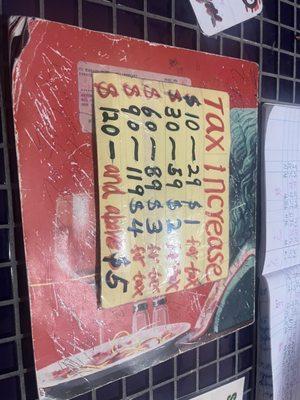 Tax increase
$ 10 — 29 $ 1 for tax
$ 30 — 59 $ 2 for tax
$ 60 — 89 $ 3 for tax
$ 90 — 119 $ 4 for tax
$ 120 — and above $ 5